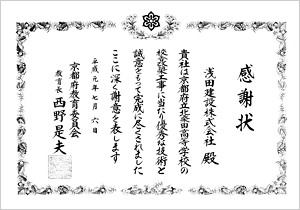 感謝状
浅田建設株式会社 殿
貴社は京都府立北桑田高等学校の
校舎改築工事に当たり優秀な技術と
誠意をもって完成に尽くされました
ここに深く謝意を表します
平成元年七月六日
京都府教育委員会
教育長 西野是夫